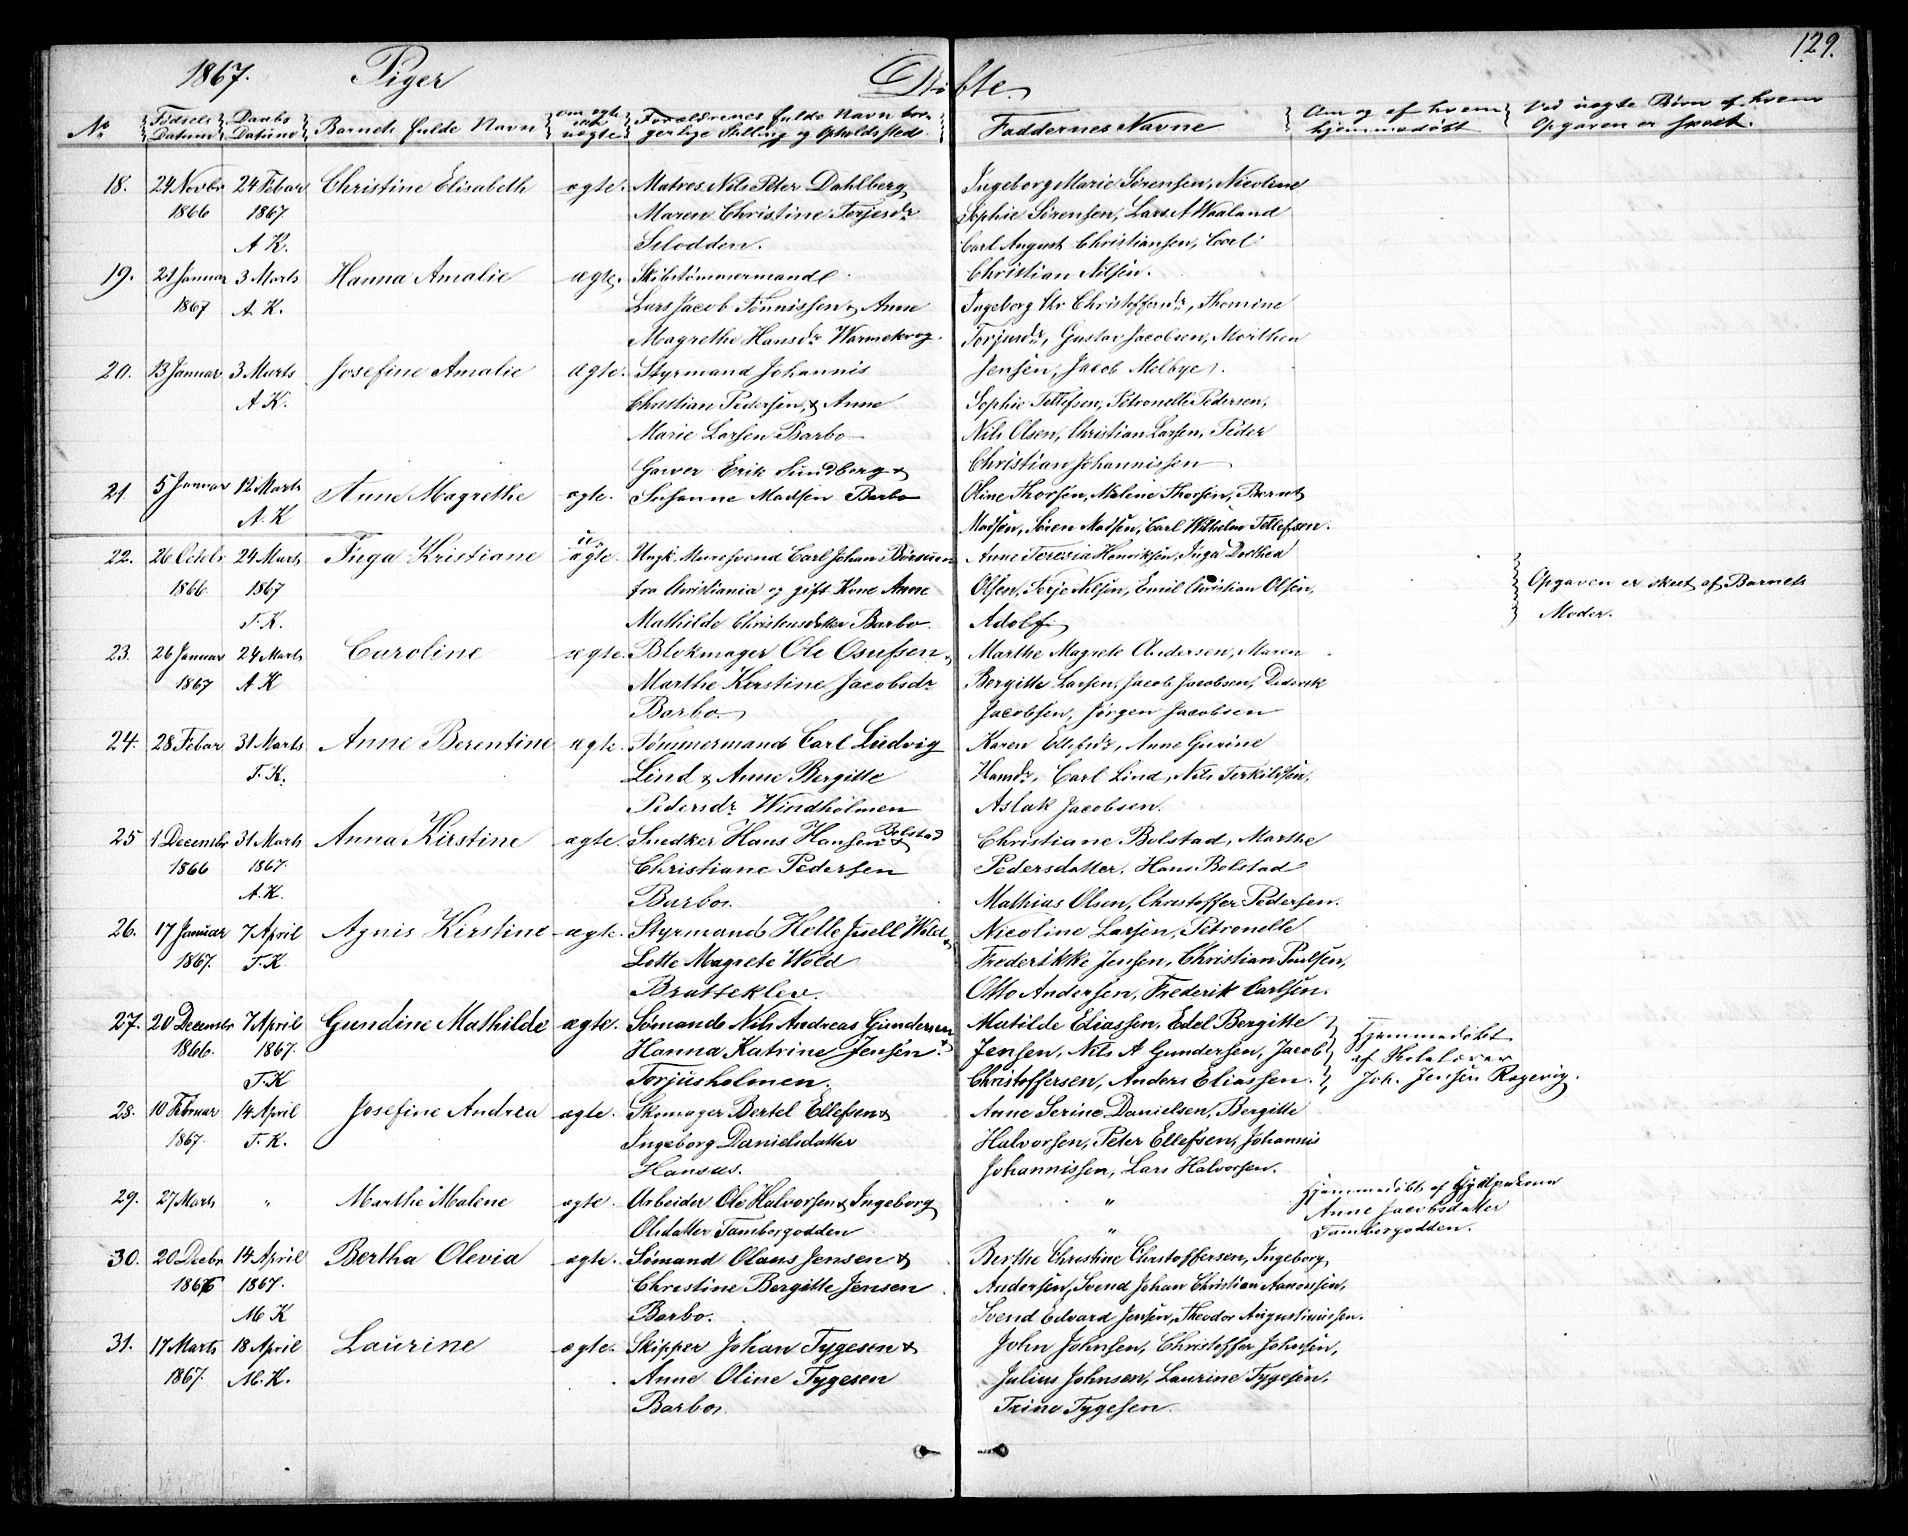 129.
1867. Piger Døbte.
No Fødsels Datum Daabs Datum Barnets fulde Navn om ægte eller uægte Forældrenes fulde Navn bor-
gerlige Stilling og Opholdsted. Faddernes Navne Om og af hvem hjemmedøbt Ved uægte Børn af hvem Opgaven er skeet.
18. 24 Novbr 24 Febar Christine Elisabeth ægte. Matros Nils Peter Dahlberg Ingeborg Marie Sørensen, Nicoline
1866 1867. Maren Christine Terjesdr Sophie Sørensen, Lars A Waaland
A K. Selodden. Carl August Christiansen, Carl
19. 21 Januar 3 Marts Hanna Amalie ægte. Skibstømmermand Christian Nilsen.
1867 A. K. Lars Jacob Tønnissen & Anne Ingeborg Chr Christoffersdr, Thomine
Magrethe Hansdr Warmekrog. Torjusdr, Gustav Jacobsen, Morthen
20. 13 Januar 3 Marts Josefine Amalie ægte. Styrmand Johannis Jensen, Jacob Melbye.
A K. Christian Pedersen, & Anne Sophie Tellefsen, Petronelle Pedersen,
Marie Larsen Barbo Nils Olsen, Christian Larsen, Peder
Garver Erik Sundberg & Christian Johannissen
21. 5 Januar 12 Marts Anne Magrethe ægte. Susanne Madsen Barbo Oline Thorsen, Malene Thorsen, Bernt
A. K Madsen, Søren Madsen, Carl Wilhelm Tellefsen.
22. 26 Octobr 24 Marts Inga Kristiane uægte. Ungk. Muresvend Carl Johan Børresen Anne Teresia Henriksen, Inga Dorthea
1866 1867 fra Christiania og gift Kone Anne Olsen, Terje Nilsen, Emil Christian Olsen, Opgaven er skeet af Barnets
T. K. Mathilde Christensdatter Barbo. Adolf Moder.
23. 26 Januar 24 Marts Caroline ægte. Blokmager Ole Osufsen & Marthe Magrete Andersen, Maren
1867 A K Marthe Kirstine Jacobsdr Bergitte Larsen, Jacob Jacobsen, Dederik
Barbo. Jacobsen, Jørgen Jacobsen
24. 28 Febar 31 Marts Anne Berentine ægte. Tømmermand Carl Ludvig Karen Ellefsdr, Anne Gurine
T. K. Lind & Anne Bergitte Hansdr, Carl Lind, Nils Terkildsen,
Pedersdr Windholmen Aslak Jacobsen.
25 1 Decembr 31 Marts Anna Kirstine ægte. Snedker Hans Hansen Bolstad & Christiane Bolstad, Marthe
1866 1867. Christiane Pedersen Pedersdatter, Hans Bolstad
A. K. Barbo. Mathias Olsen, Christoffer Pedersen.
26. 17 Januar 7 April Agnis Kirstine ægte. Styrmand Helle Juell Wold & Nicoline Larsen, Petronelle
1867. T. K. Lotte Magrete Wold Frederikke Jensen, Christian Poulsen,
Bratteklev. Otto Andersen, Frederik Carlsen.
27. 20 Decembr 7 April Gundine Mathilde ægte. Sømand Nils Andreas Gundersen & Matilde Eliassen, Edel Bergitte Hjemmedøbt
1866. 1867. Hanna Katrine Jensen. Jensen, Nils A Gundersen, Jacob af Skolelærer
T. K Torjusholmen. Christoffersen, Anders Eliassen. Joh. Jensen Rægevig.
28. 10 Februar 14 April Josefine Andrea ægte. Skomager Bertel Ellefsen & Anne Serine Danielsen, Bergitte
1867. T. K. Ingeborg Danielsdatter Halvorsen, Peter Ellefsen, Johannis
Hansæs. Johannissen, Lars Halvorsen.
29. 27 Marts " Marthe Malene ægte. Arbeider Ole Halvorsen & Ingeborg " Hjemmedøbt af Gjordmoderen
Olsdatter Tamborgodden " Anne Jacobsdatter
Tamborgodden.
30. 20 Decbr 14 April Bertha Olevia ægte. Sømand Olaus Jensen & Berthe Christine Christoffersen, Ingeborg
1866 1867. Christine Bergitte Jensen Andersen, Svend Johan Christian Aanonsen,
M K Barbo. Svend Edvard Jensen, Theodor Augustinussen.
31. 17 Marts 18 April Laurine ægte. Skipper Johan Tygesen & John Johnsen, Christoffer Johnsen,
1867. M. K. Anne Oline Tygesen Julius Johnsen, Laurine Tygesen,
Barbo. Trine Tygesen